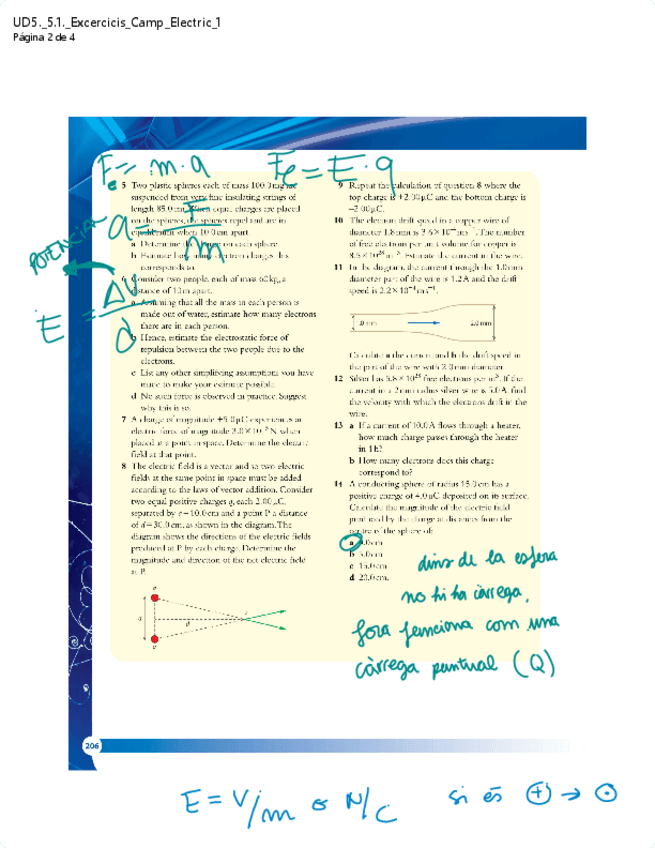 UD5._5.1._Excercicis_Camp_Electric_1
Página 2 de 4
F = m·a
Fe = E·q
a = F/m
POTENCIAL
E = ΔV/d
5 Two plastic spheres each of mass 100.0 mg are
suspended from very fine insulating strings of
length 85.0 cm. When equal charges are placed
on the spheres, the spheres repel and are in
equilibrium when 10.0 cm apart.
a Determine the charge on each sphere.
b Estimate how many electron charges this
corresponds to.
6 Consider two people, each of mass 60 kg, a
distance of 10 m apart.
a Assuming that all the mass in each person is
made out of water, estimate how many electrons
there are in each person.
b Hence, estimate the electrostatic force of
repulsion between the two people due to the
electrons.
c List any other simplifying assumptions you have
made to make your estimate possible.
d No such force is observed in practice. Suggest
why this is so.
7 A charge of magnitude +5.0 μC experiences an
electric force of magnitude 3.0 × 10⁻⁵ N when
placed at a point in space. Determine the electric
field at that point.
8 The electric field is a vector and so two electric
fields at the same point in space must be added
according to the laws of vector addition. Consider
two equal positive charges q, each 2.00 μC,
separated by a = 10.0 cm and a point P a distance
of d = 30.0 cm, as shown in the diagram. The
diagram shows the directions of the electric fields
produced at P by each charge. Determine the
magnitude and direction of the net electric field
at P.
a
d
9 Repeat the calculation of question 8 where the
top charge is +2.00 μC and the bottom charge is
−2.00 μC.
10 The electron drift speed in a copper wire of
diameter 1.8 mm is 3.6 × 10⁻⁴ m s⁻¹. The number
of free electrons per unit volume for copper is
8.5 × 10²⁸ m⁻³. Estimate the current in the wire.
11 In the diagram, the current through the 1.0 mm
diameter part of the wire is 1.2 A and the drift
speed is 2.2 × 10⁻⁴ m s⁻¹.
1.0 mm
2.0 mm
Calculate a the current and b the drift speed in
the part of the wire with 2.0 mm diameter.
12 Silver has 5.8 × 10²⁸ free electrons per m³. If the
current in a 2 mm radius silver wire is 5.0 A, find
the velocity with which the electrons drift in the
wire.
13 a If a current of 10.0 A flows through a heater,
how much charge passes through the heater
in 1 h?
b How many electrons does this charge
correspond to?
14 A conducting sphere of radius 15.0 cm has a
positive charge of 4.0 μC deposited on its surface.
Calculate the magnitude of the electric field
produced by the charge at distances from the
centre of the sphere of:
a 0.0 cm
b 5.0 cm
c 15.0 cm
d 20.0 cm.
dins de la esfera
no hi ha càrrega,
fora funciona com una
càrrega puntual (Q)
206
E = V/m o N/C
si és ⊕ → ⊙